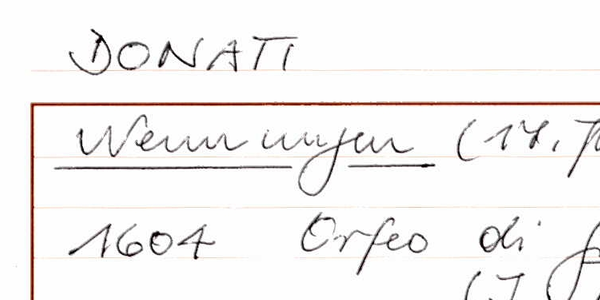 DONATI
Wenningen (17.
1604 Orfeo di
(I